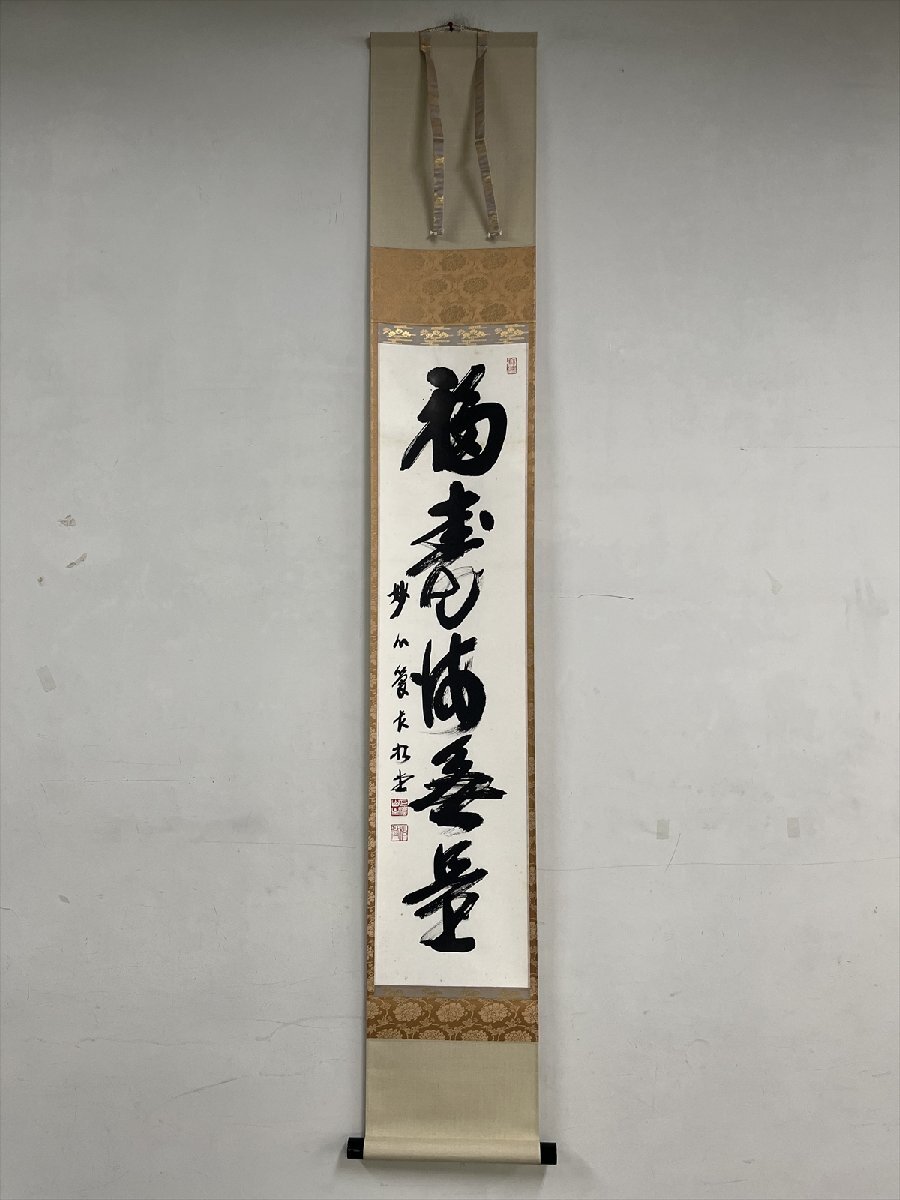 福寿海無量
妙心管長松堂